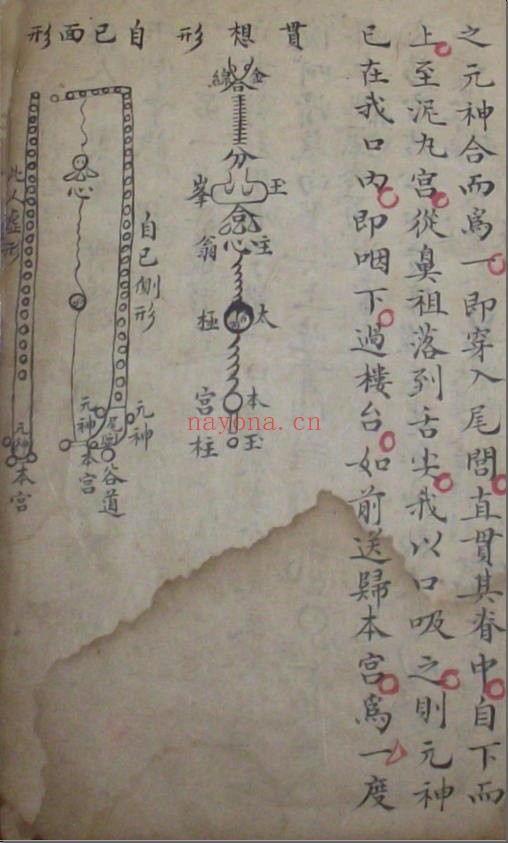 之元神合而爲一即穿入尾閭直貫其脊中自下而
上至泥丸宮從鼻祖落到舌尖我以口吸之則元神
已在我口內即咽下過樓台如前送歸本宮爲一度
貫想形自已面形
金
分
玉
峯
心
主
翁
太
極
本
宮
玉
柱
自已側形
心
元神
尾閭
元神
本宮
谷道
此人虛形
元神
本宮
nayona.cn